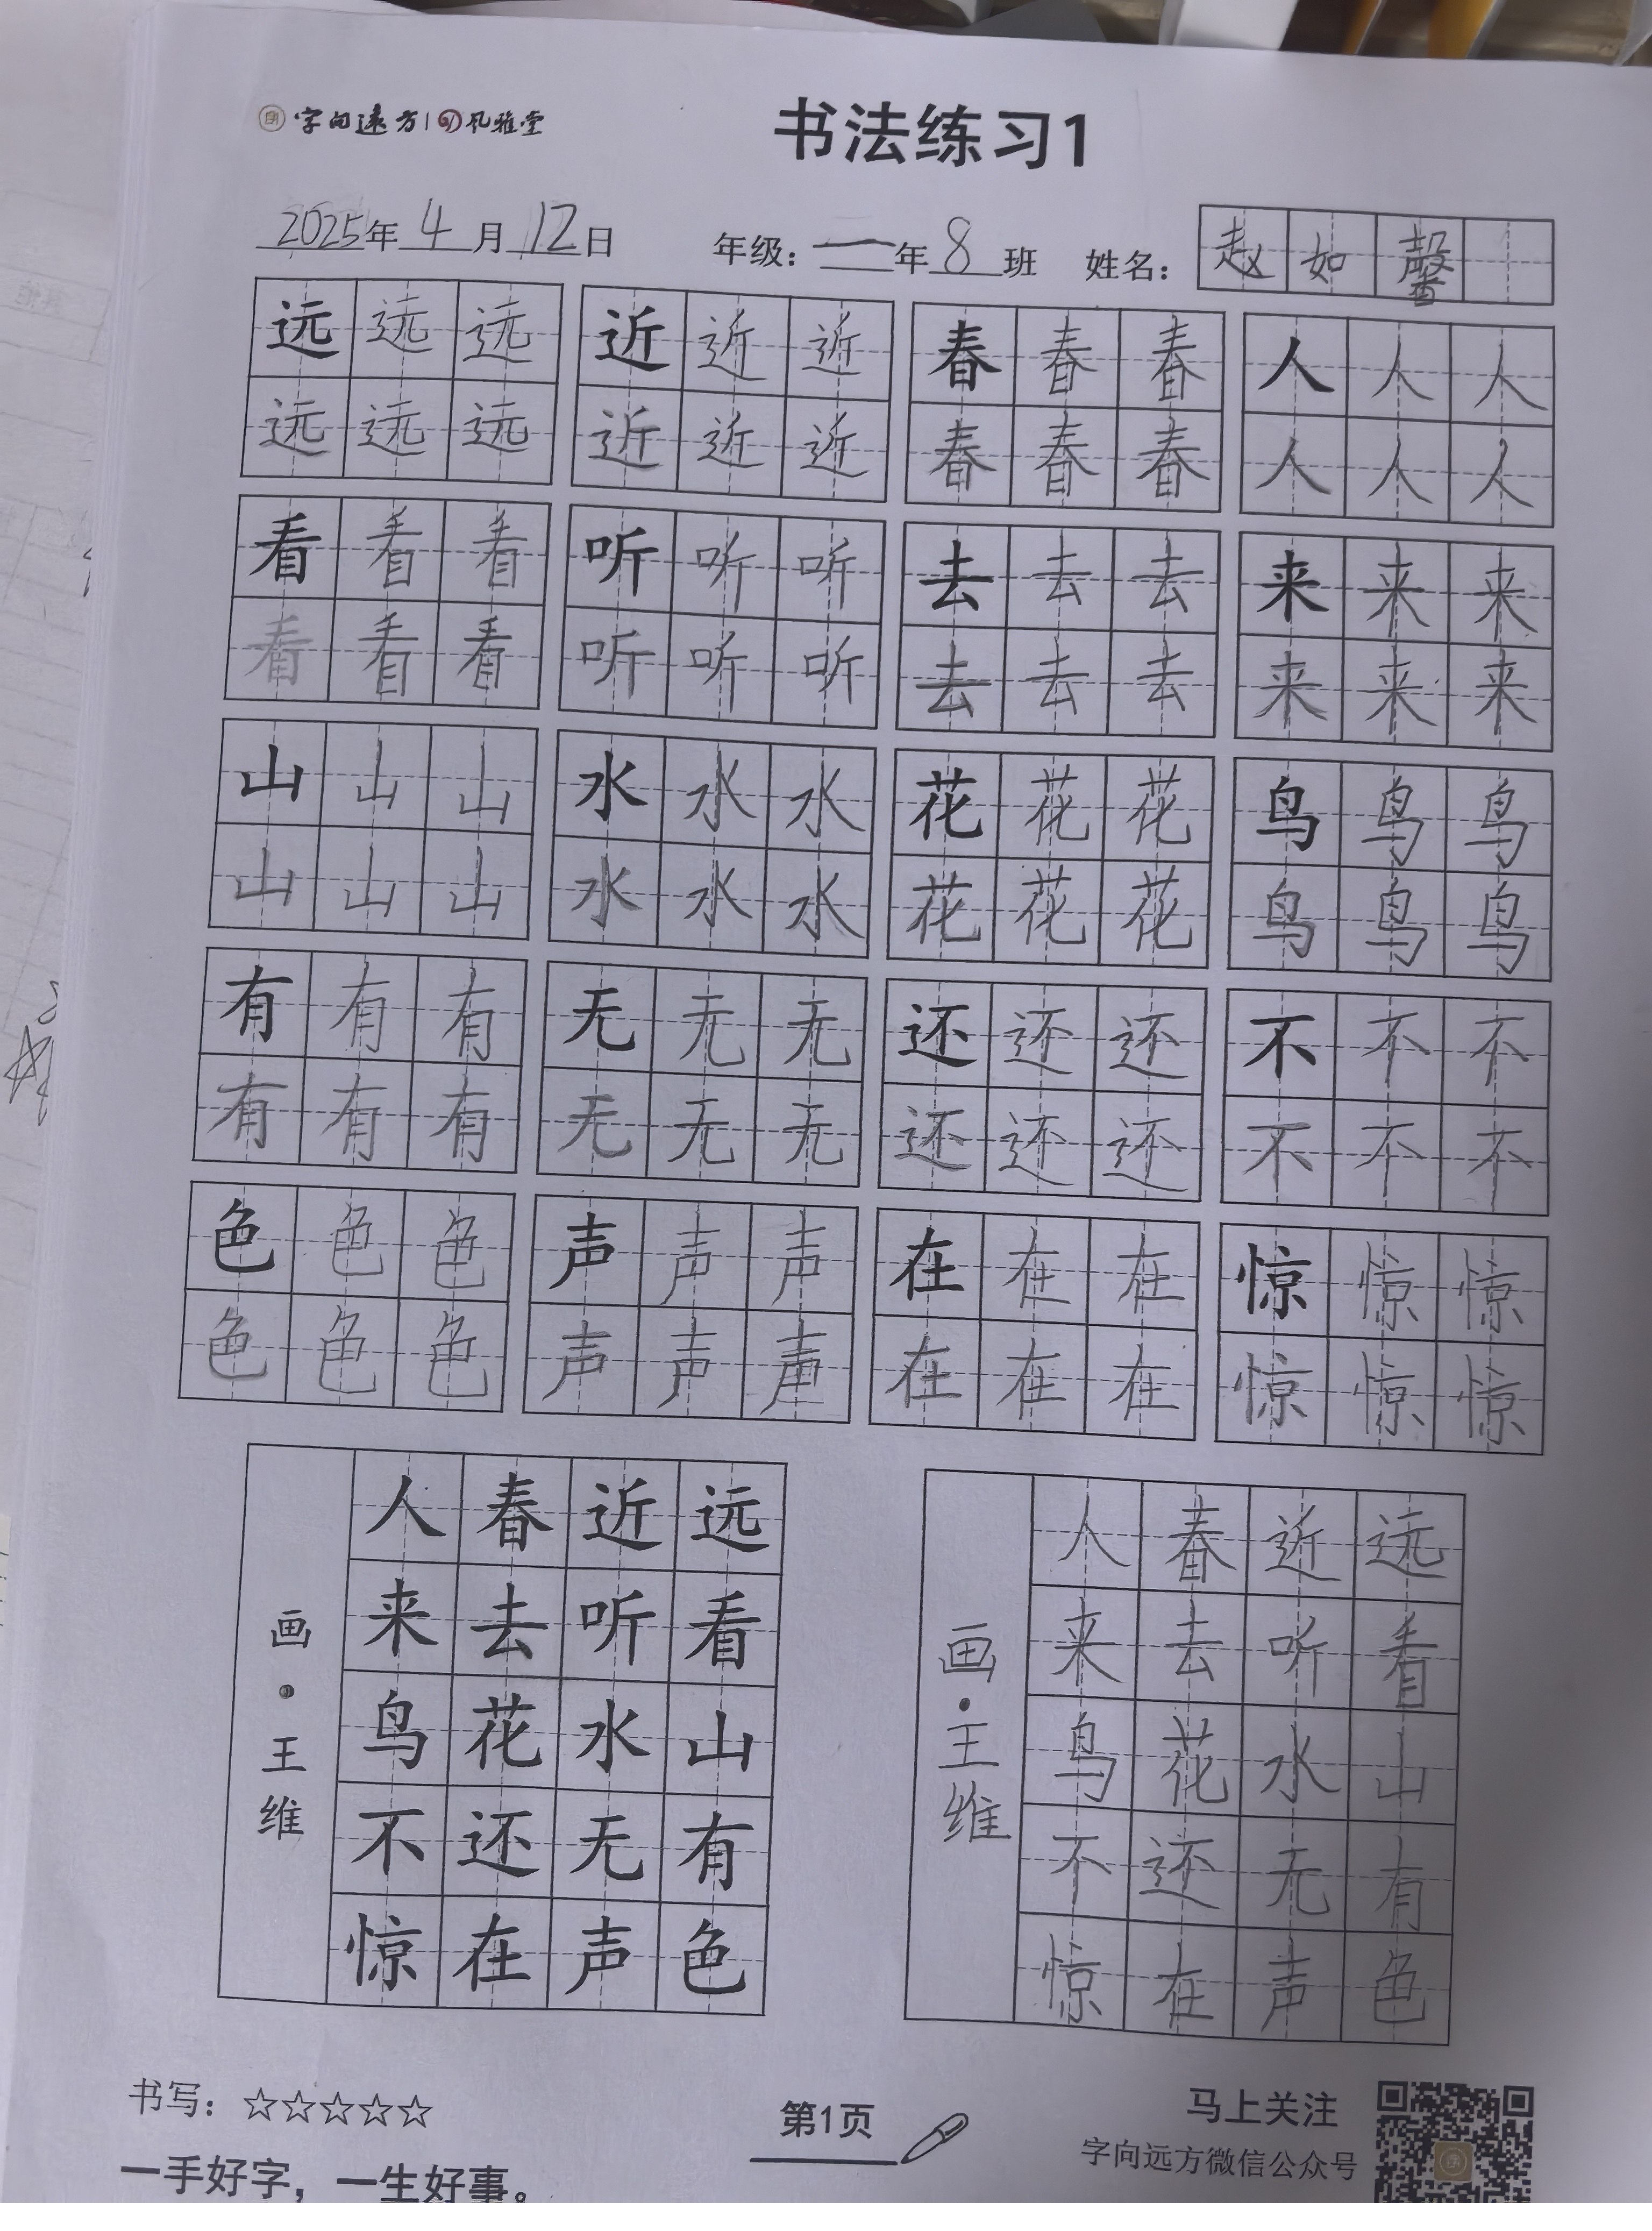 字向远方 | 风雅堂
书法练习1
2025年4月12日 年级：一年8班 姓名：赵如馨
远远远 近近近 春春春 人人人
远远远 近近近 春春春 人人人
看看看 听听听 去去去 来来来
看看看 听听听 去去去 来来来
山山山 水水水 花花花 鸟鸟鸟
山山山 水水水 花花花 鸟鸟鸟
有有有 无无无 还还还 不不不
有有有 无无无 还还还 不不不
色色色 声声声 在在在 惊惊惊
色色色 声声声 在在在 惊惊惊
远看山有色
近听水无声
春去花还在
人来鸟不惊
画·王维
远看山有色
近听水无声
春去花还在
人来鸟不惊
画·王维
书写：☆☆☆☆☆
一手好字，一生好事。
第1页
马上关注
字向远方微信公众号